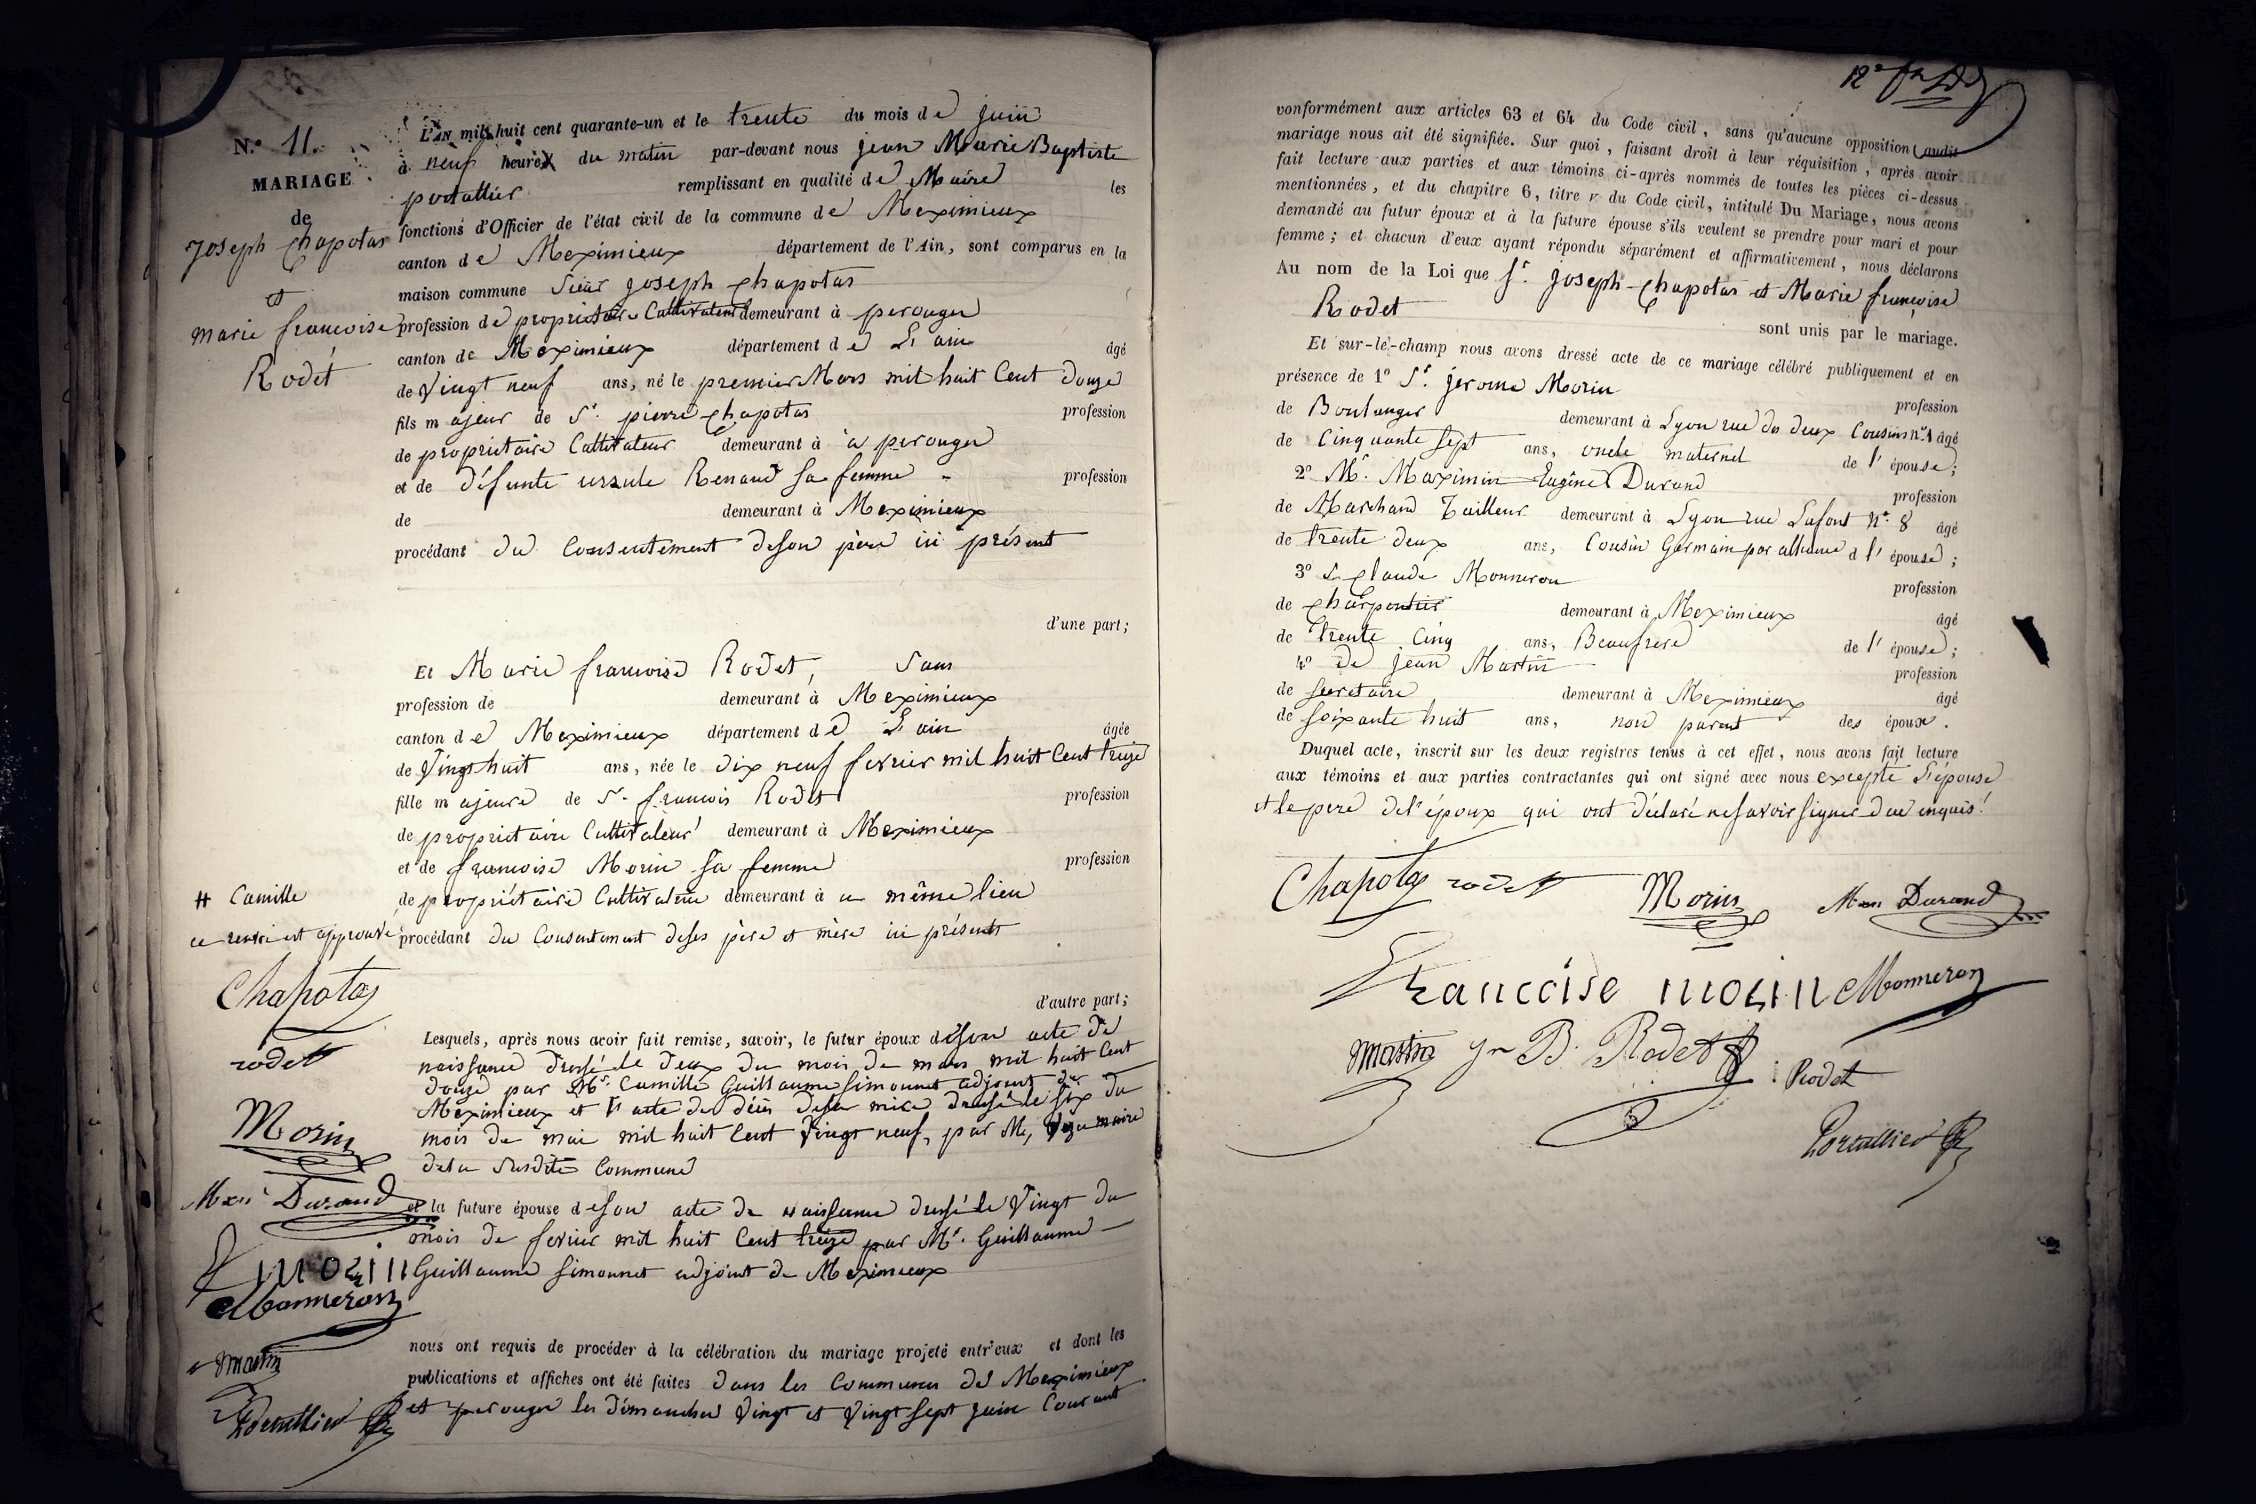 N.º 11.
MARIAGE
de
Joseph Chapotas
et
Marie francoise
Rodet
L'AN mil huit cent quarante-un et le trente du mois de juin
à neuf heures du matin par-devant nous jean Marie Baptiste
portallier remplissant en qualité de Maire les
fonctions d'Officier de l'état civil de la commune de Meximieux
canton de Meximieux département de l'Ain, sont comparus en la
maison commune Sieur joseph Chapotas
profession de propriétaire Cultivateur demeurant à perouges
canton de Meximieux département de L'ain âgé
de Vingt neuf ans, né le premier Mars mil huit Cent douze
fils majeur de Sr. pierre Chapotas profession
de propriétaire Cultivateur demeurant à à perouges
et de défunte ursule Renaud sa femme profession
de demeurant à Meximieux
procédant du Consentement deson père ici présent
d'une part;
Et Marie francoise Rodet, Sans
profession de demeurant à Meximieux
canton de Meximieux département de L'ain âgée
de Vingt huit ans, née le dix neuf fevrier mil huit Cent treize
fille majeure de Sr. francois Rodet profession
de propriétaire Cultivateur demeurant à Meximieux
et de francoise Morin sa femme profession
de propriétaire Cultivateur demeurant à au même lieu
procédant du Consentement deses père et mère ici présents
d'autre part;
Lesquels, après nous avoir fait remise, savoir, le futur époux deson acte de
naissance dressé le deux du mois de mars mil huit Cent
douze par Mr. Camille Guillaume simonnet adjoint de
Meximieux et l'acte de décès desa mère dressé le six du
mois de mai mil huit Cent Vingt neuf, par M, maire
dela Susdite Commune
et la future épouse deson acte de naissance dressé le Vingt du
mois de fevrier mil huit Cent treize par Mr. Guillaume
Guillaume simonnet adjoint de Meximieux
nous ont requis de procéder à la célébration du mariage projeté entr'eux et dont les
publications et affiches ont été faites dans les Communes de Meximieux
et perouges les dimanches Vingt et Vingt sept juin Courant
# Camille
ce renvoi est approuvé
Chapotas
rodet
Morin
Max Durand
F morin
Monneron
martin
Portallier
12e
conformément aux articles 63 et 64 du Code civil, sans qu'aucune opposition audit
mariage nous ait été signifiée. Sur quoi, faisant droit à leur réquisition, après avoir
fait lecture aux parties et aux témoins ci-après nommés de toutes les pièces ci-dessus
mentionnées, et du chapitre 6, titre v du Code civil, intitulé Du Mariage, nous avons
demandé au futur époux et à la future épouse s'ils veulent se prendre pour mari et pour
femme; et chacun d'eux ayant répondu séparément et affirmativement, nous déclarons
Au nom de la Loi que Sr. joseph Chapotas et Marie françoise
Rodet
sont unis par le mariage.
Et sur-le-champ nous avons dressé acte de ce mariage célébré publiquement et en
présence de 1º Sr. jerome Morin profession
de Boulanger demeurant à Lyon rue des deux Cousins nº.1 âgé
de Cinquante sept ans, oncle maternel de l'épouse;
2º Mr. Maximin Eugène Durand profession
de Marchand Tailleur demeurant à Lyon rue Lafont nº. 8 âgé
de trente deux ans, Cousin Germain par alliance d l'épouse;
3º Sr Claude Monneron profession
de Charpentier demeurant à Meximieux âgé
de trente Cinq ans, Beaufrere de l'épouse;
4º De jean Martin profession
de secretaire demeurant à Meximieux âgé
de soixante huit ans, non parent des époux.
Duquel acte, inscrit sur les deux registres tenus à cet effet, nous avons fait lecture
aux témoins et aux parties contractantes qui ont signé avec nous excepté L'épouse
et le pere del'époux qui ont déclaré ne savoir signer due enquis
Chapotas rodet Morin Max Durand
francoise morin Monneron
martin jn B. Rodet Rodet
Portallier